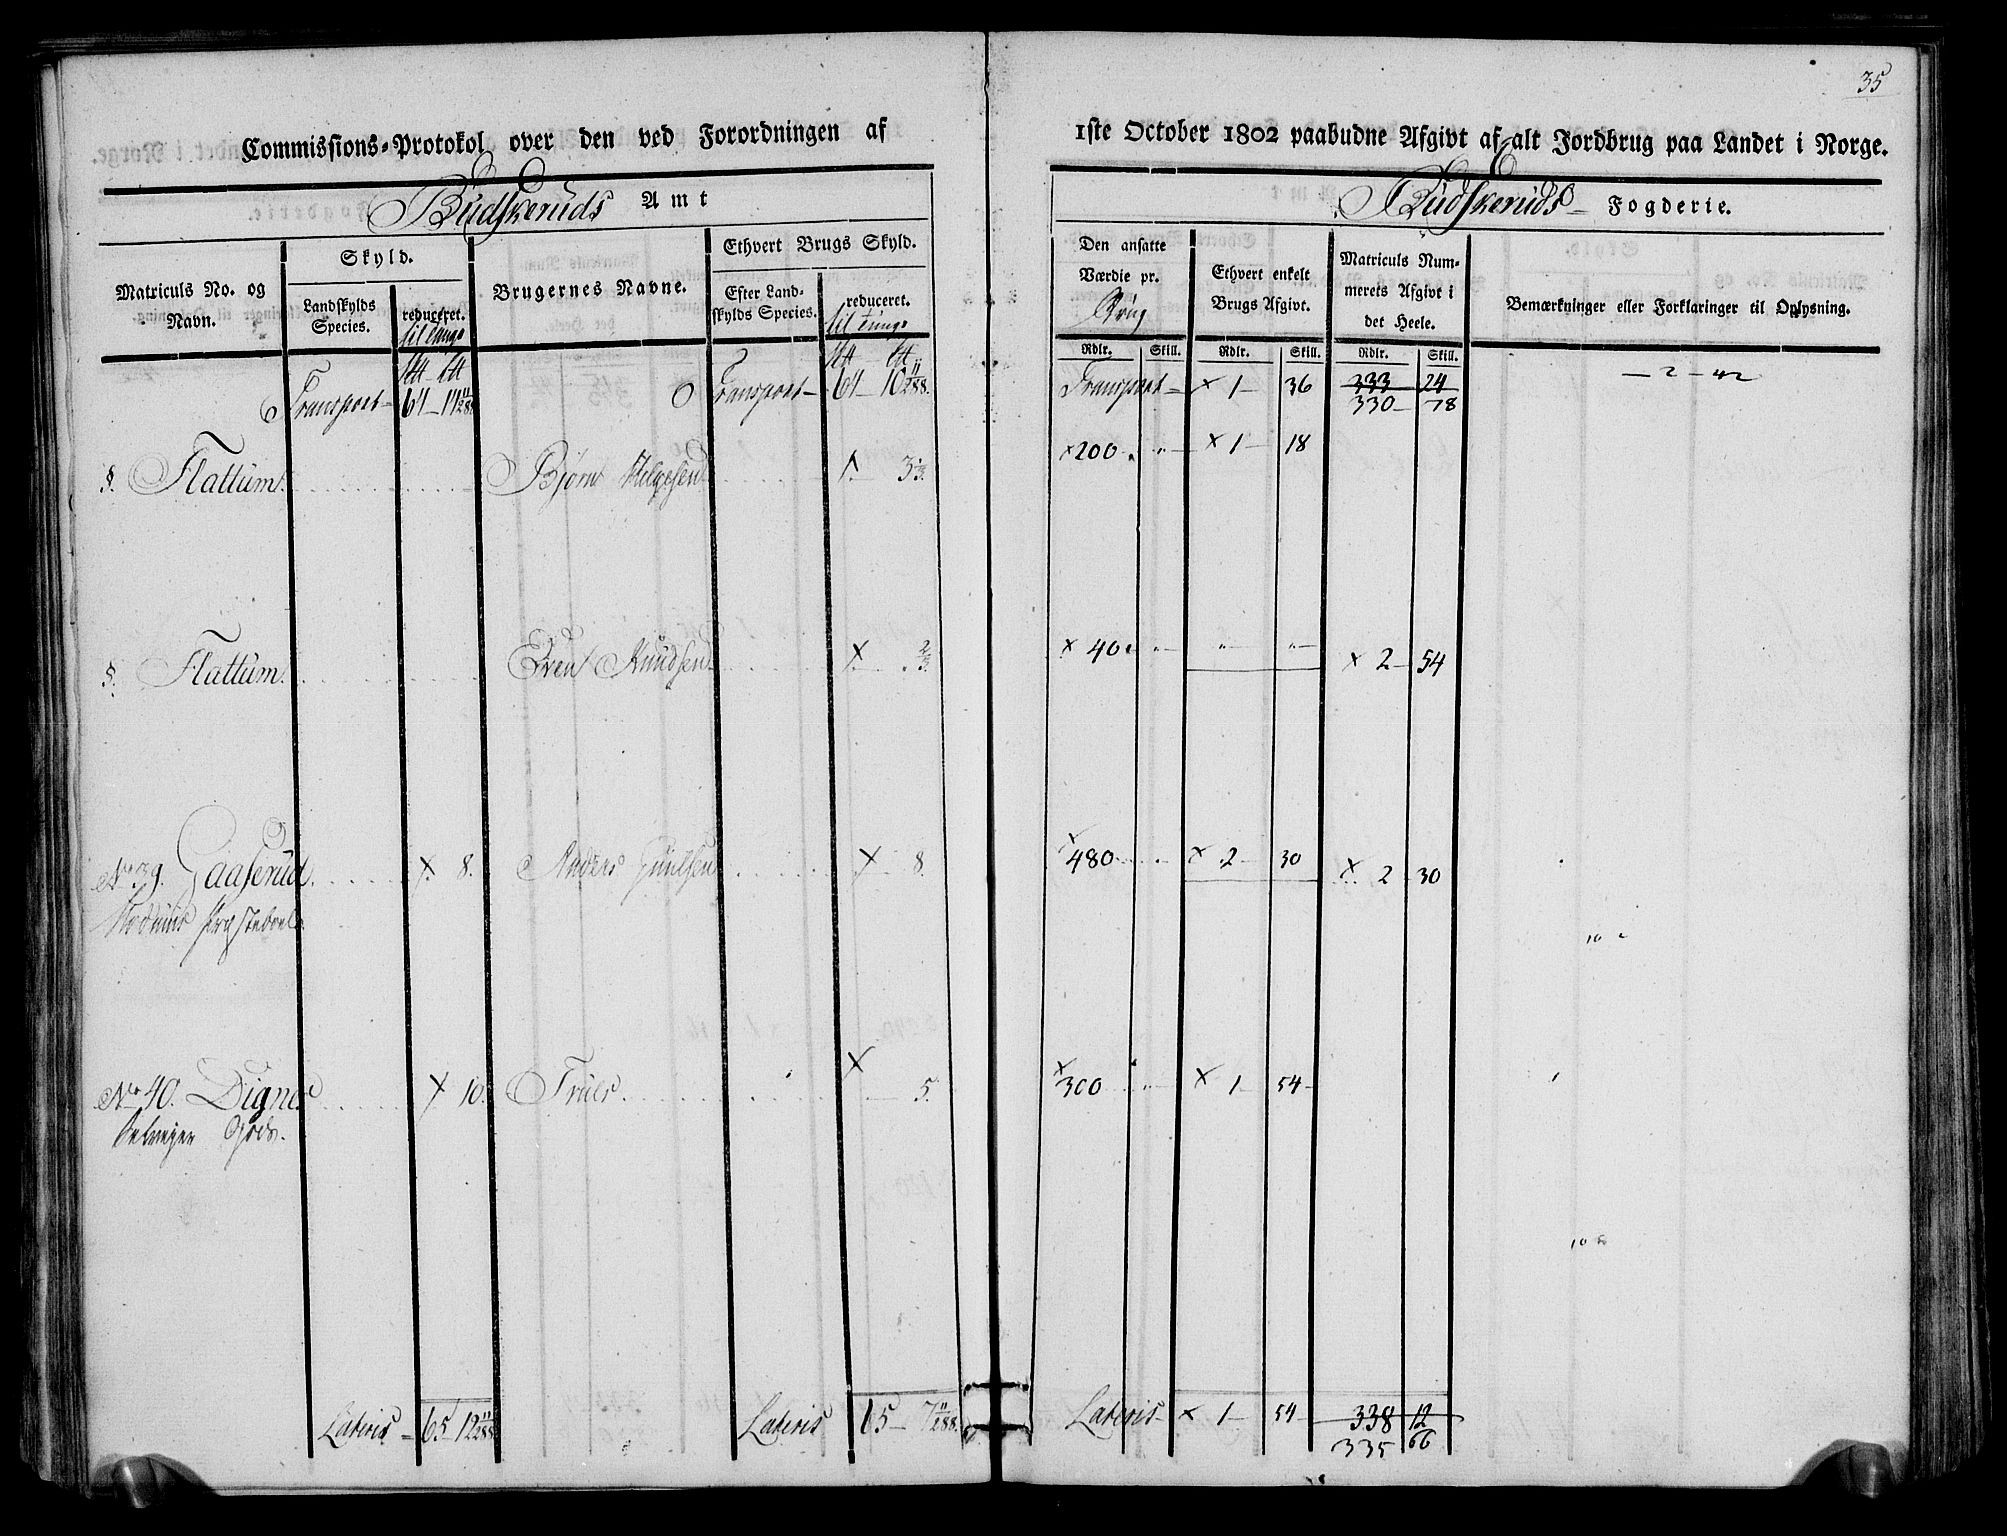 35
Commissions-Protokol over den ved Forordningen af 1ste October 1802 paabudne Afgivt af alt Jordbrug paa Landet i Norge.
Budskeruds Amt
Budskeruds Fogderie.
Matriculs No. og Navn.
Skyld.
Landskylds Species.
reduceret.
til Tunge
Brugernes Navne.
Ethvert Brugs Skyld.
Efter Landskylds Species.
reduceret.
til Tunge
Den ansatte Værdie pr. Brug
Rdlr. Skill.
Ethvert enkelt Brugs Afgivt.
Rdlr. Skill.
Matriculs Nummerets Afgivt i det Heele.
Rdlr. Skill.
Bemærkninger eller Forklaringer til Oplysning.
Transport 64 11/288 Transport 64 10 11/288. Transport x 1 36 333 24 — 2 — 42
330 78
§. Flattum. Bjørn Helgesen 3 1/3. x 200 „ x 1 18
§. Flattum. Even Knudsen x 2/3. x 40 „ „ „ x 2 54
No 39. Gaaserud. x 8. Anders x 8. x 480 „ x 2 30 x 2 30
Modums Præstebole
10
No 40. Dignes x 10. Truls x 5. x 300 „ x 1 54
Selveyer Gods.
10
Lateris 65 12 11/288 Lateris 65 7 11/288. Lateris x 1 54 338 12
335 66